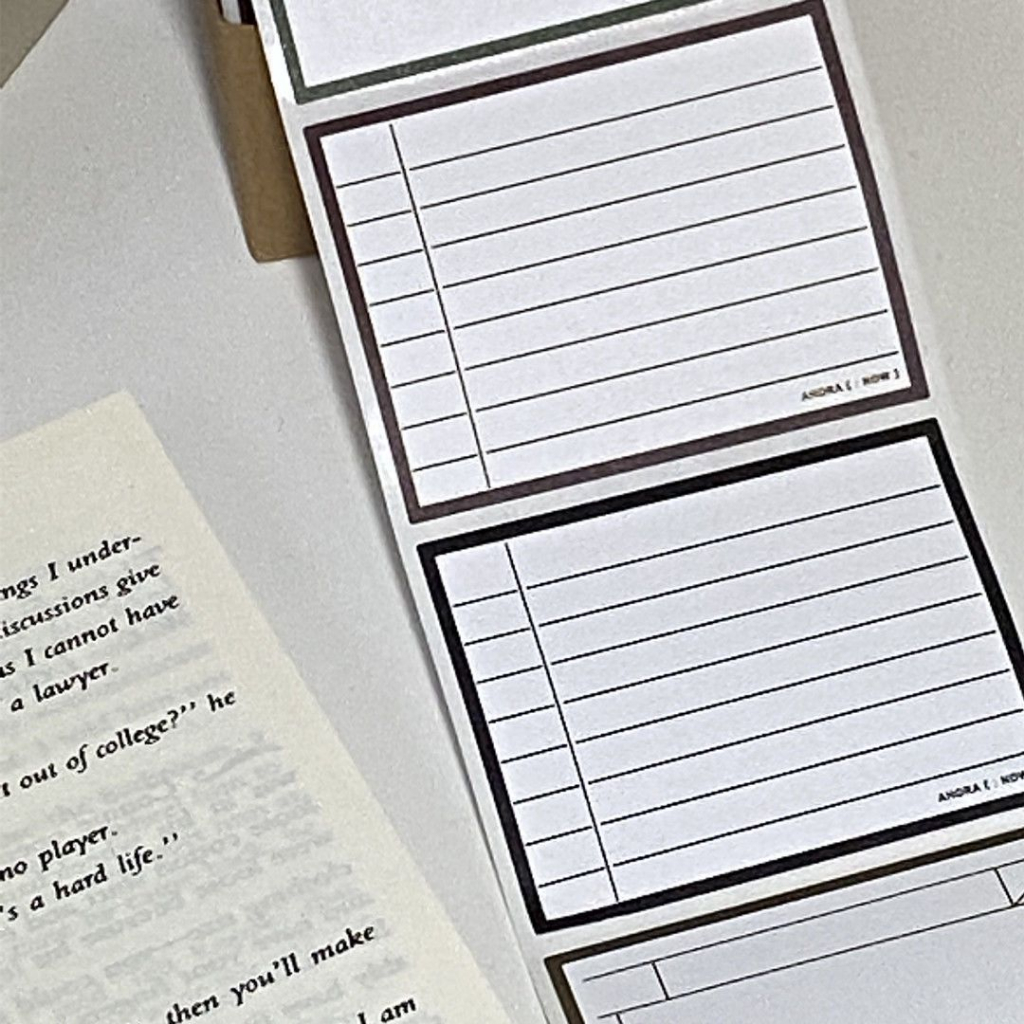 ngs I under-
iscussions give
as I cannot have
a lawyer.
t out of college?" he
no player.
's a hard life."
then you'll make
I am
AHORA [ : NOW ]
AHORA [ : NOW